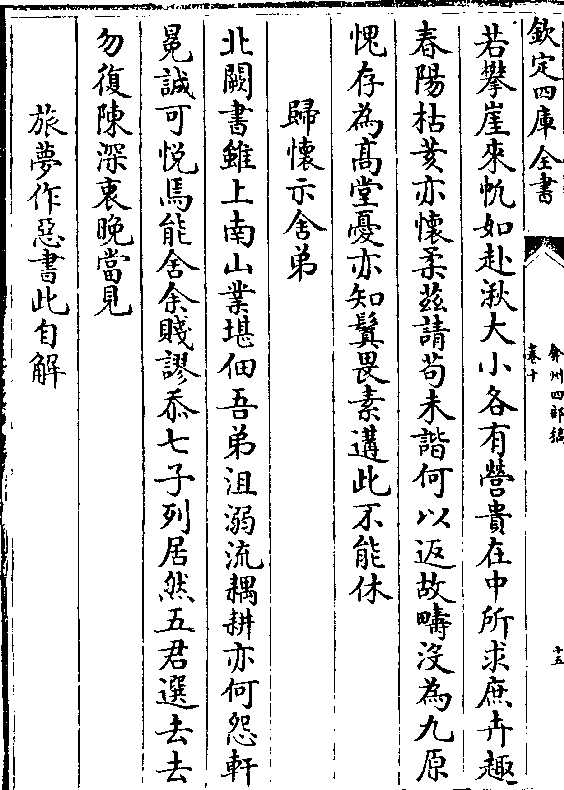 欽定四庫全書
弇州四部稿
卷十
十五
若攀崖來帆如赴湫大小各有營貴在中所求庶卉趣
春陽枯荄亦懷柔茲請苟未諧何以返故疇沒為九原
愧存為高堂憂亦知鬂畏素遘此不能休
歸懷示舍弟
北闕書雖上南山業堪佃吾弟沮溺流耦耕亦何怨軒
冕誠可悅焉能舍余賤謬忝七子列居然五君選去去
勿復陳深衷晚當見
旅夢作惡書此自解